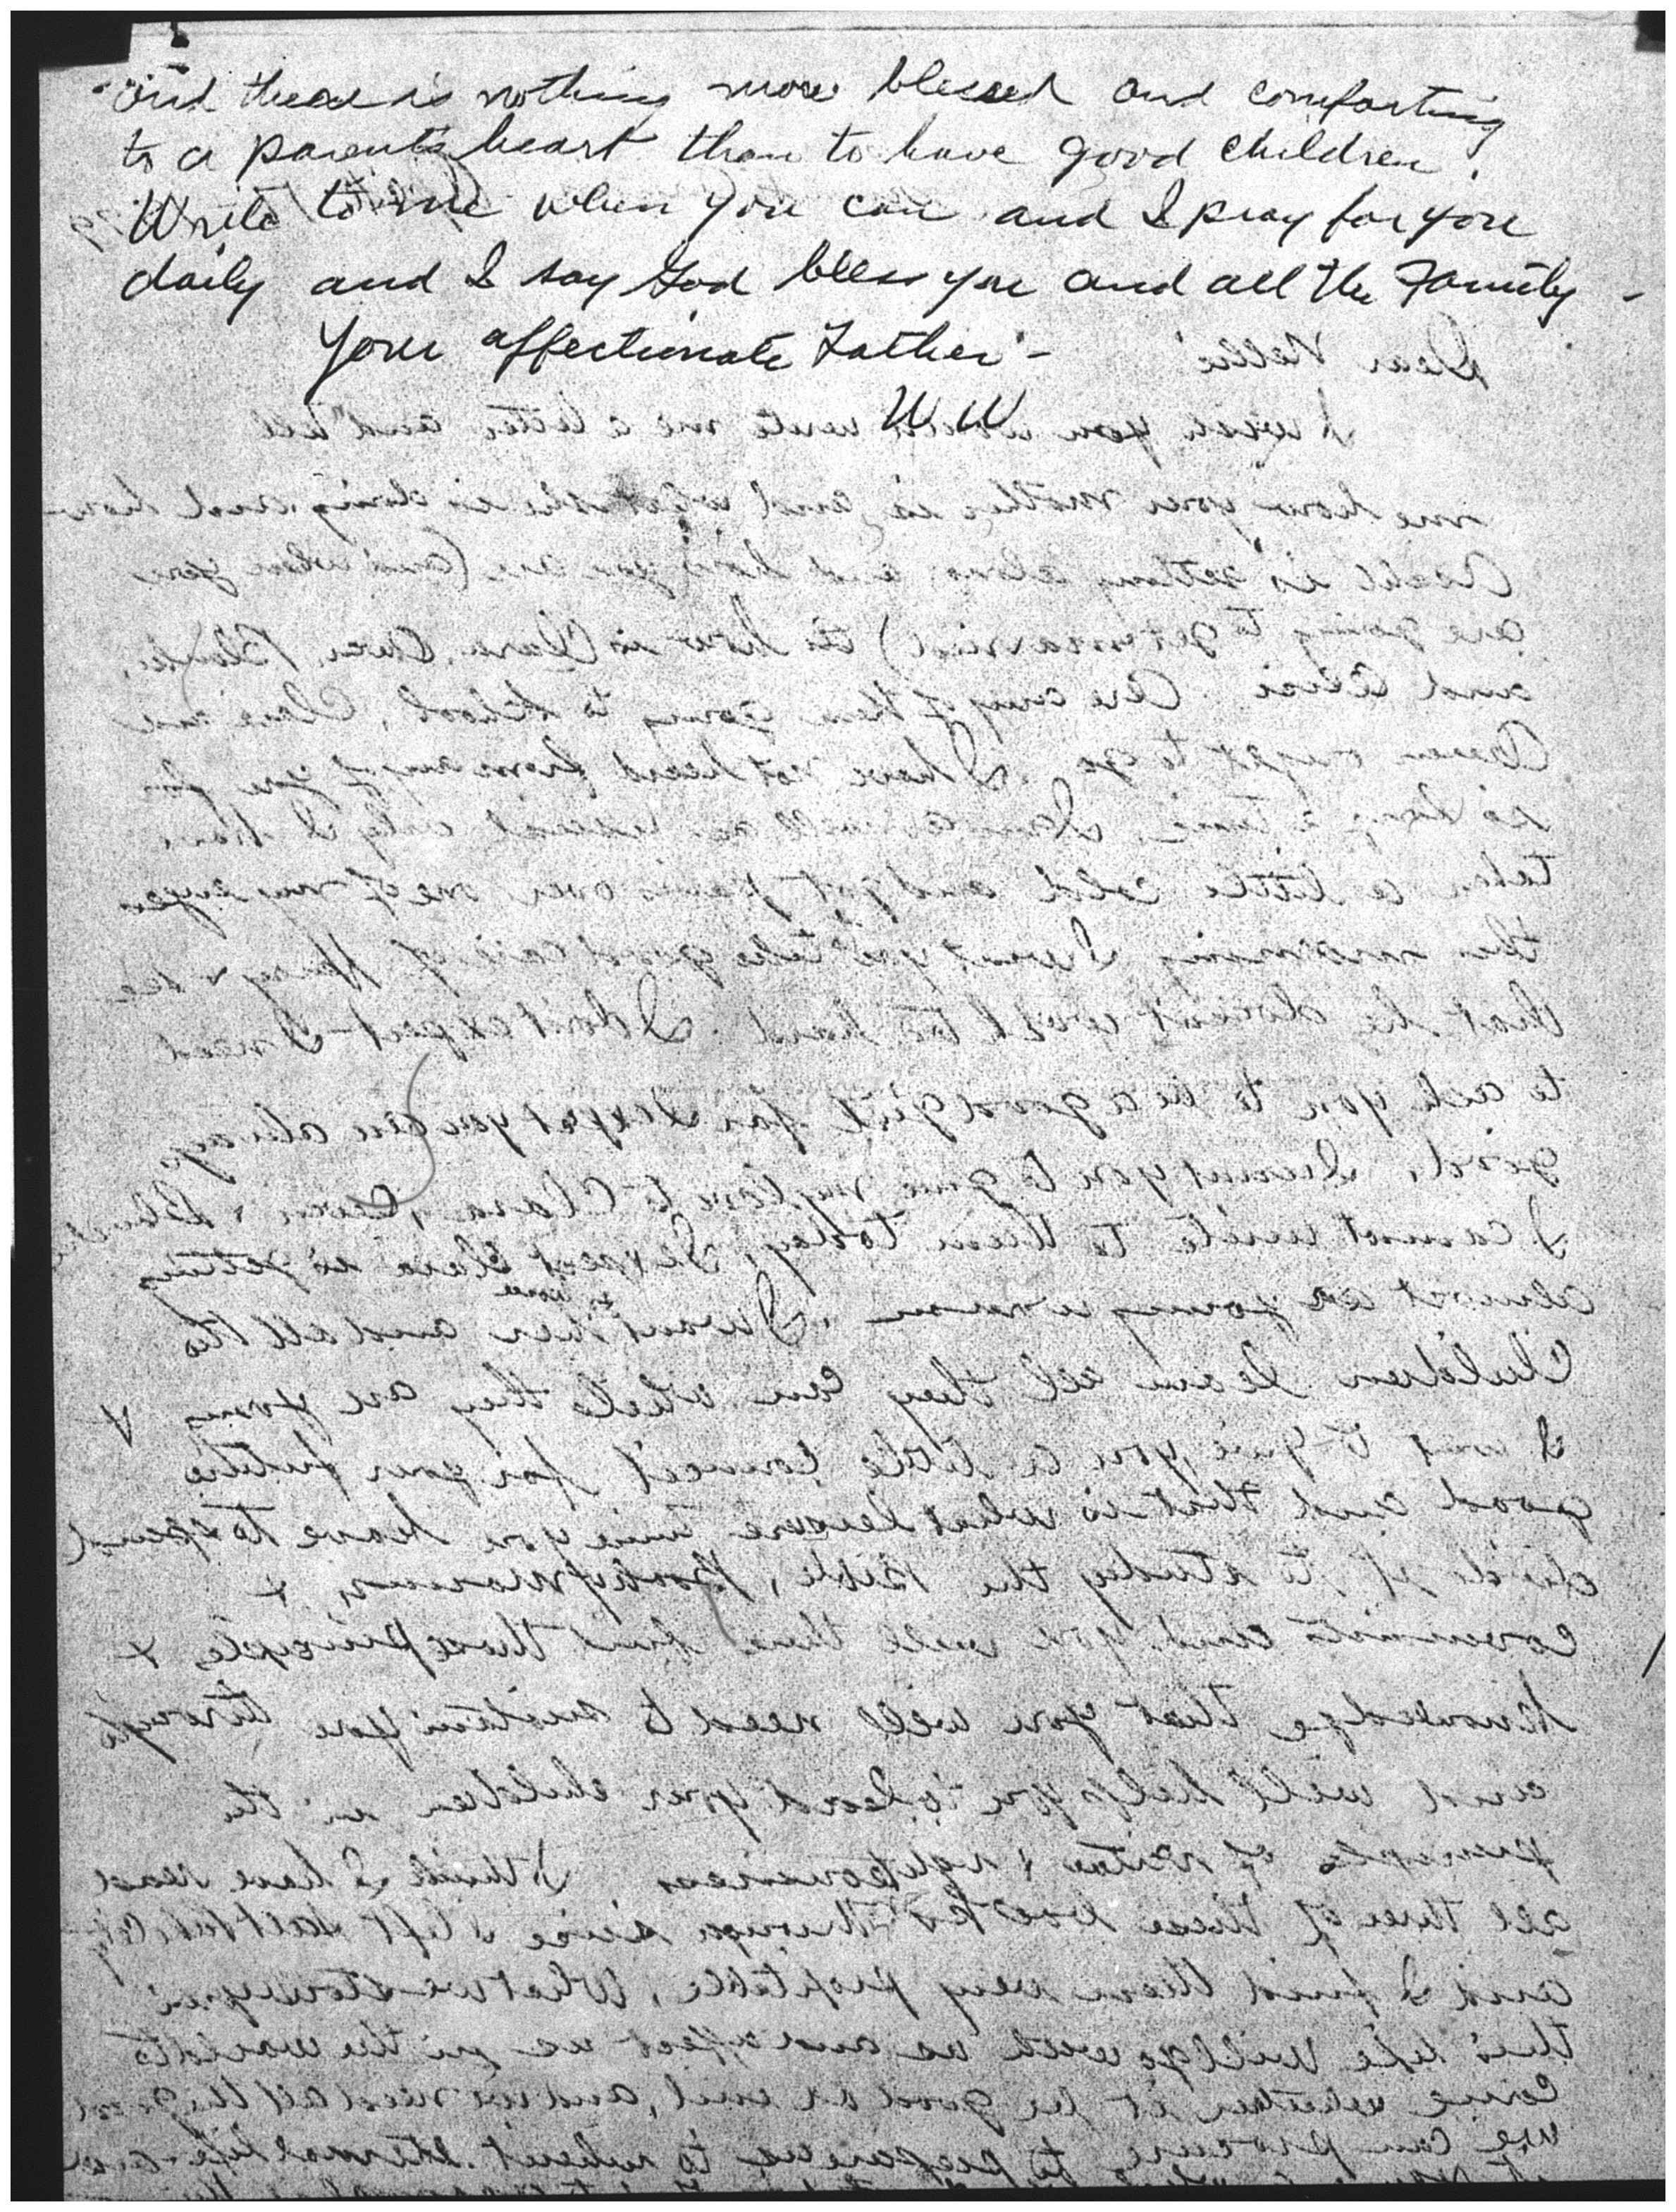 and there is nothing more blessed and comforting
to a parents heart than to have good children.
Write to me when you can and I pray for you
daily and I say God bless you and all the Family -
Your affectionate Father -
W W
Dear Nellie
I wish you would write me a letter and tell
me how your mother is and what she is doing and how
is getting along and how you are (and when you
are going to get married) how is Clara, Owen, Blanche,
and Alice. Are any of them going to school, Clara and
Owen ought to go. I have not heard from any of you for
so long a time. I am as well as usual only I have
taken a little cold and got pain over one of my eyes
this morning I want you to take good care of & see
that he doesn't work too hard. I don't expect I need
to ask you to be a good girl for I expect you are always
good. I want you to give my love to Clara, Owen & Blanche
I cannot write to them today, I expect Clara is getting
almost a young woman. I want her and all the
Children learn all they can while they are young &
I want to give you a little council for your future
good and that is what leisure time you have to spend
of it to study the Bible, Book of Mormon, &
Covenants and you will there find those principles &
Knowledge that you will need to sustain you through
and will help you to lead your children in the
principles of virtue & righteousness I think I have read
all three of these books through since I left Salt Lake City
and I find them very profitable, What we store up in
this life will go with us and affect us in the world to
come whether it be good or evil, and we need all the good
we can procure to prepare us to inherit eternal life and